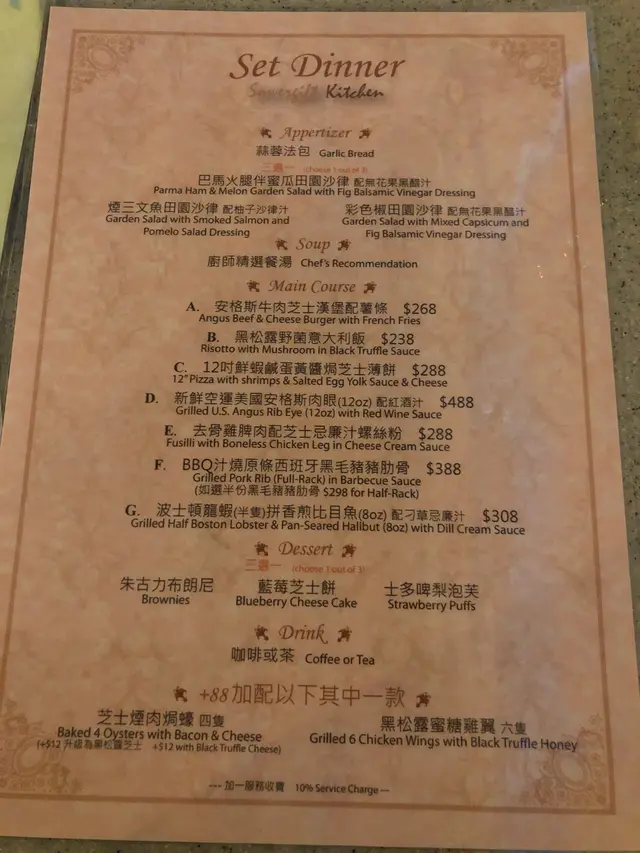 Set Dinner
Kitchen
Appertizer
蒜蓉法包 Garlic Bread
三選一 (choose 1 out of 3)
巴馬火腿伴蜜瓜田園沙律 配無花果黑醋汁
Parma Ham & Melon Garden Salad with Fig Balsamic Vinegar Dressing
煙三文魚田園沙律 配柚子沙律汁
Garden Salad with Smoked Salmon and
Pomelo Salad Dressing
彩色椒田園沙律 配無花果黑醋汁
Garden Salad with Mixed Capsicum and
Fig Balsamic Vinegar Dressing
Soup
廚師精選餐湯 Chef's Recommendation
Main Course
A. 安格斯牛肉芝士漢堡配薯條 $268
Angus Beef & Cheese Burger with French Fries
B. 黑松露野菌意大利飯 $238
Risotto with Mushroom in Black Truffle Sauce
C. 12吋鮮蝦鹹蛋黃醬焗芝士薄餅 $288
12" Pizza with shrimps & Salted Egg Yolk Sauce & Cheese
D. 新鮮空運美國安格斯肉眼(12oz) 配紅酒汁 $488
Grilled U.S. Angus Rib Eye (12oz) with Red Wine Sauce
E. 去骨雞脾肉配芝士忌廉汁螺絲粉 $288
Fusilli with Boneless Chicken Leg in Cheese Cream Sauce
F. BBQ汁燒原條西班牙黑毛豬豬肋骨 $388
Grilled Pork Rib (Full-Rack) in Barbecue Sauce
(如選半份黑毛豬豬肋骨 $298 for Half-Rack)
G. 波士頓龍蝦(半隻)拼香煎比目魚(8oz) 配刁草忌廉汁 $308
Grilled Half Boston Lobster & Pan-Seared Halibut (8oz) with Dill Cream Sauce
Dessert
三選一 (choose 1 out of 3)
朱古力布朗尼
Brownies
藍莓芝士餅
Blueberry Cheese Cake
士多啤梨泡芙
Strawberry Puffs
Drink
咖啡或茶 Coffee or Tea
+88加配以下其中一款
芝士煙肉焗蠔 四隻
Baked 4 Oysters with Bacon & Cheese
(+$12 升級為黑松露芝士 +$12 with Black Truffle Cheese)
黑松露蜜糖雞翼 六隻
Grilled 6 Chicken Wings with Black Truffle Honey
--- 加一服務收費 10% Service Charge ---